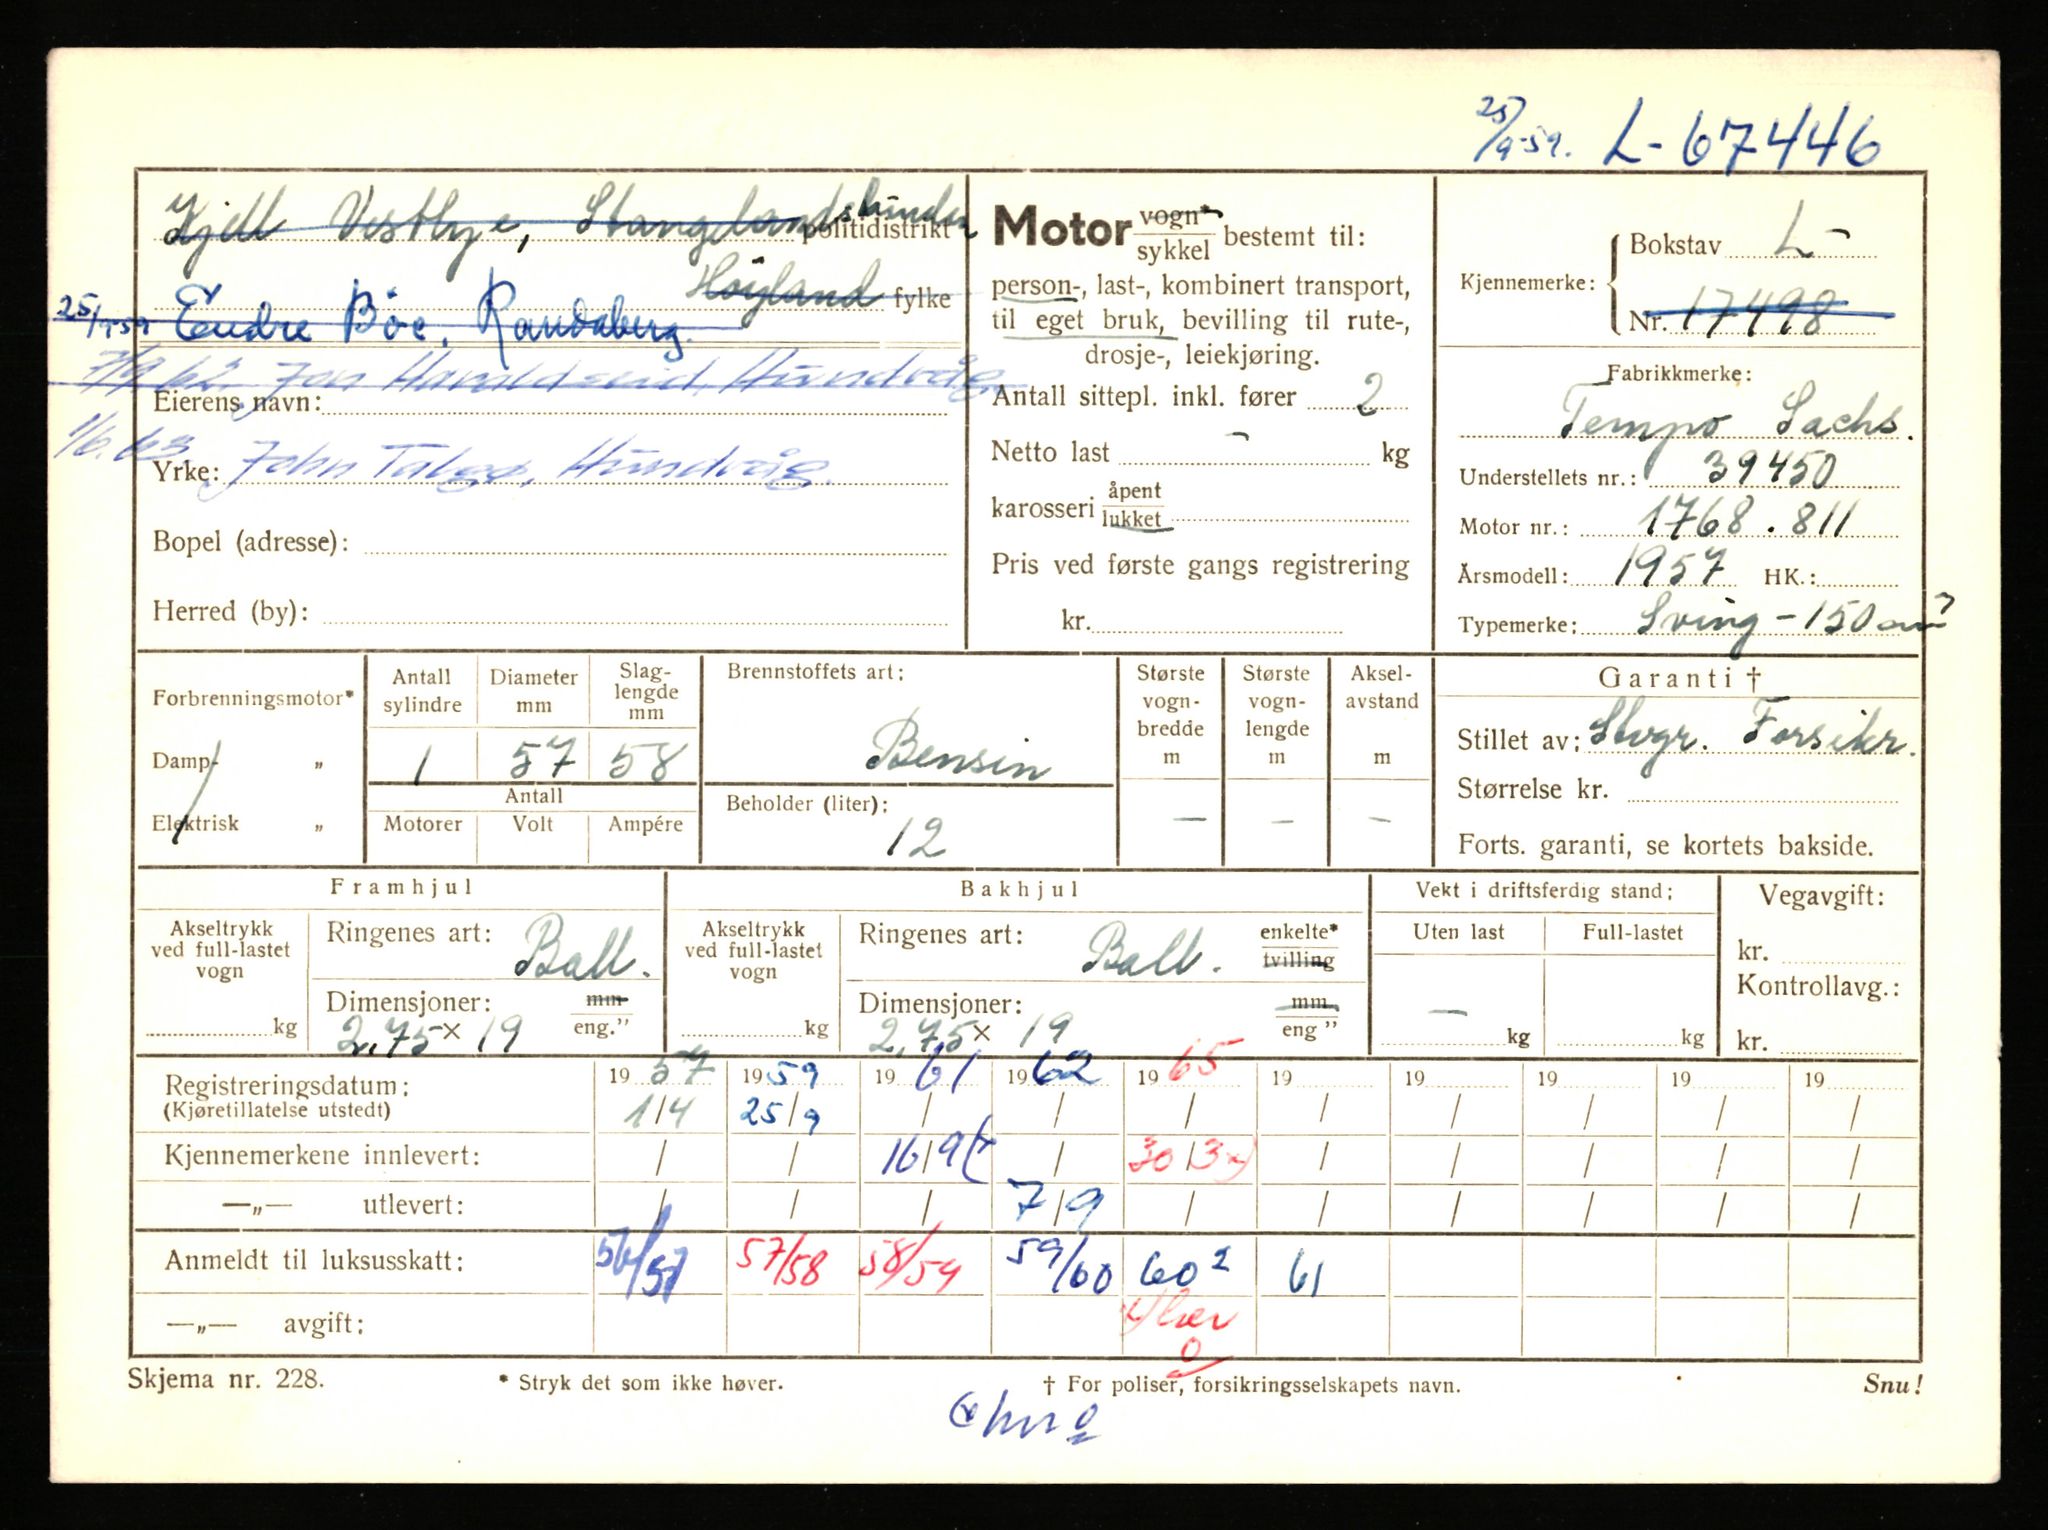 25/9-59. L-67446
Kjell Vestbye, Stanglandshinden politidistrikt
Høyland fylke
25/9 59 Endre Bøe, Randaberg.
7/9 62. Jon Haraldseid, Hundvåg
Eierens navn:
1/6. 63 John Talgø, Hundvåg.
Yrke:
Bopel (adresse):
Herred (by):
Motor vogn* sykkel bestemt til:
person-, last-, kombinert transport,
til eget bruk, bevilling til rute-,
drosje-, leiekjøring.
Antall sittepl. inkl. fører 2
Netto last - kg
karosseri åpent lukket
Pris ved første gangs registrering
kr.
Kjennemerke: Bokstav L-
Nr. 17498
Fabrikkmerke:
Tempo Sachs.
Understellets nr.: 39450
Motor nr.: 1768.811
Årsmodell: 1957 HK.:
Typemerke: Sving - 150 cm³
Forbrenningsmotor*
Damp- „
Elektrisk „
Antall sylindre 1
Diameter mm 57
Slaglengde mm 58
Antall
Motorer Volt Ampére
Brennstoffets art:
Bensin
Beholder (liter):
12
Største vogn-bredde m -
Største vogn-lengde m -
Aksel-avstand m -
Garanti †
Stillet av: Stvgr. Forsikr.
Størrelse kr.
Forts. garanti, se kortets bakside.
Framhjul
Akseltrykk ved full-lastet vogn kg
Ringenes art: Ball.
Dimensjoner: mm eng."
2,75 x 19
Bakhjul
Akseltrykk ved full-lastet vogn kg
Ringenes art: Ball. enkelte* tvilling
Dimensjoner: mm eng "
2,75 x 19
Vekt i driftsferdig stand:
Uten last Full-lastet
- kg kg
Vegavgift:
kr.
Kontrollavg.:
kr.
Registreringsdatum: 19 57 19 59 19 61 19 62 19 65 19 19 19 19 19
(Kjøretillatelse utstedt) 1/4 25/9 / / / / / / / /
Kjennemerkene innlevert: / / 16/9 (x / 30/3 x) / / / / /
—„— utlevert: / / / 7/9 / / / / / /
Anmeldt til luksusskatt: 56/57 57/58 58/59 59/60 60² 61
—„— avgift:
x) her
0
Skjema nr. 228. * Stryk det som ikke høver. † For poliser, forsikringsselskapets navn. Snu!
(x her 0